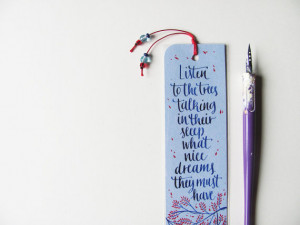 Listen
to the trees
talking
in their
sleep
what
nice
dreams
they must
have